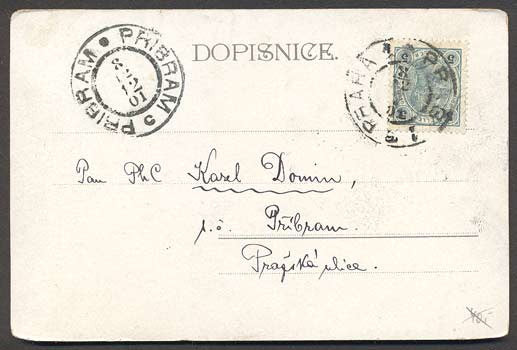 DOPISNICE.
PŘIBRAM PŘIBRAM
8 12 01
PRAHA 1
Pan PhC Karel Domin,
p. o. Příbram.
Pražská ulice.